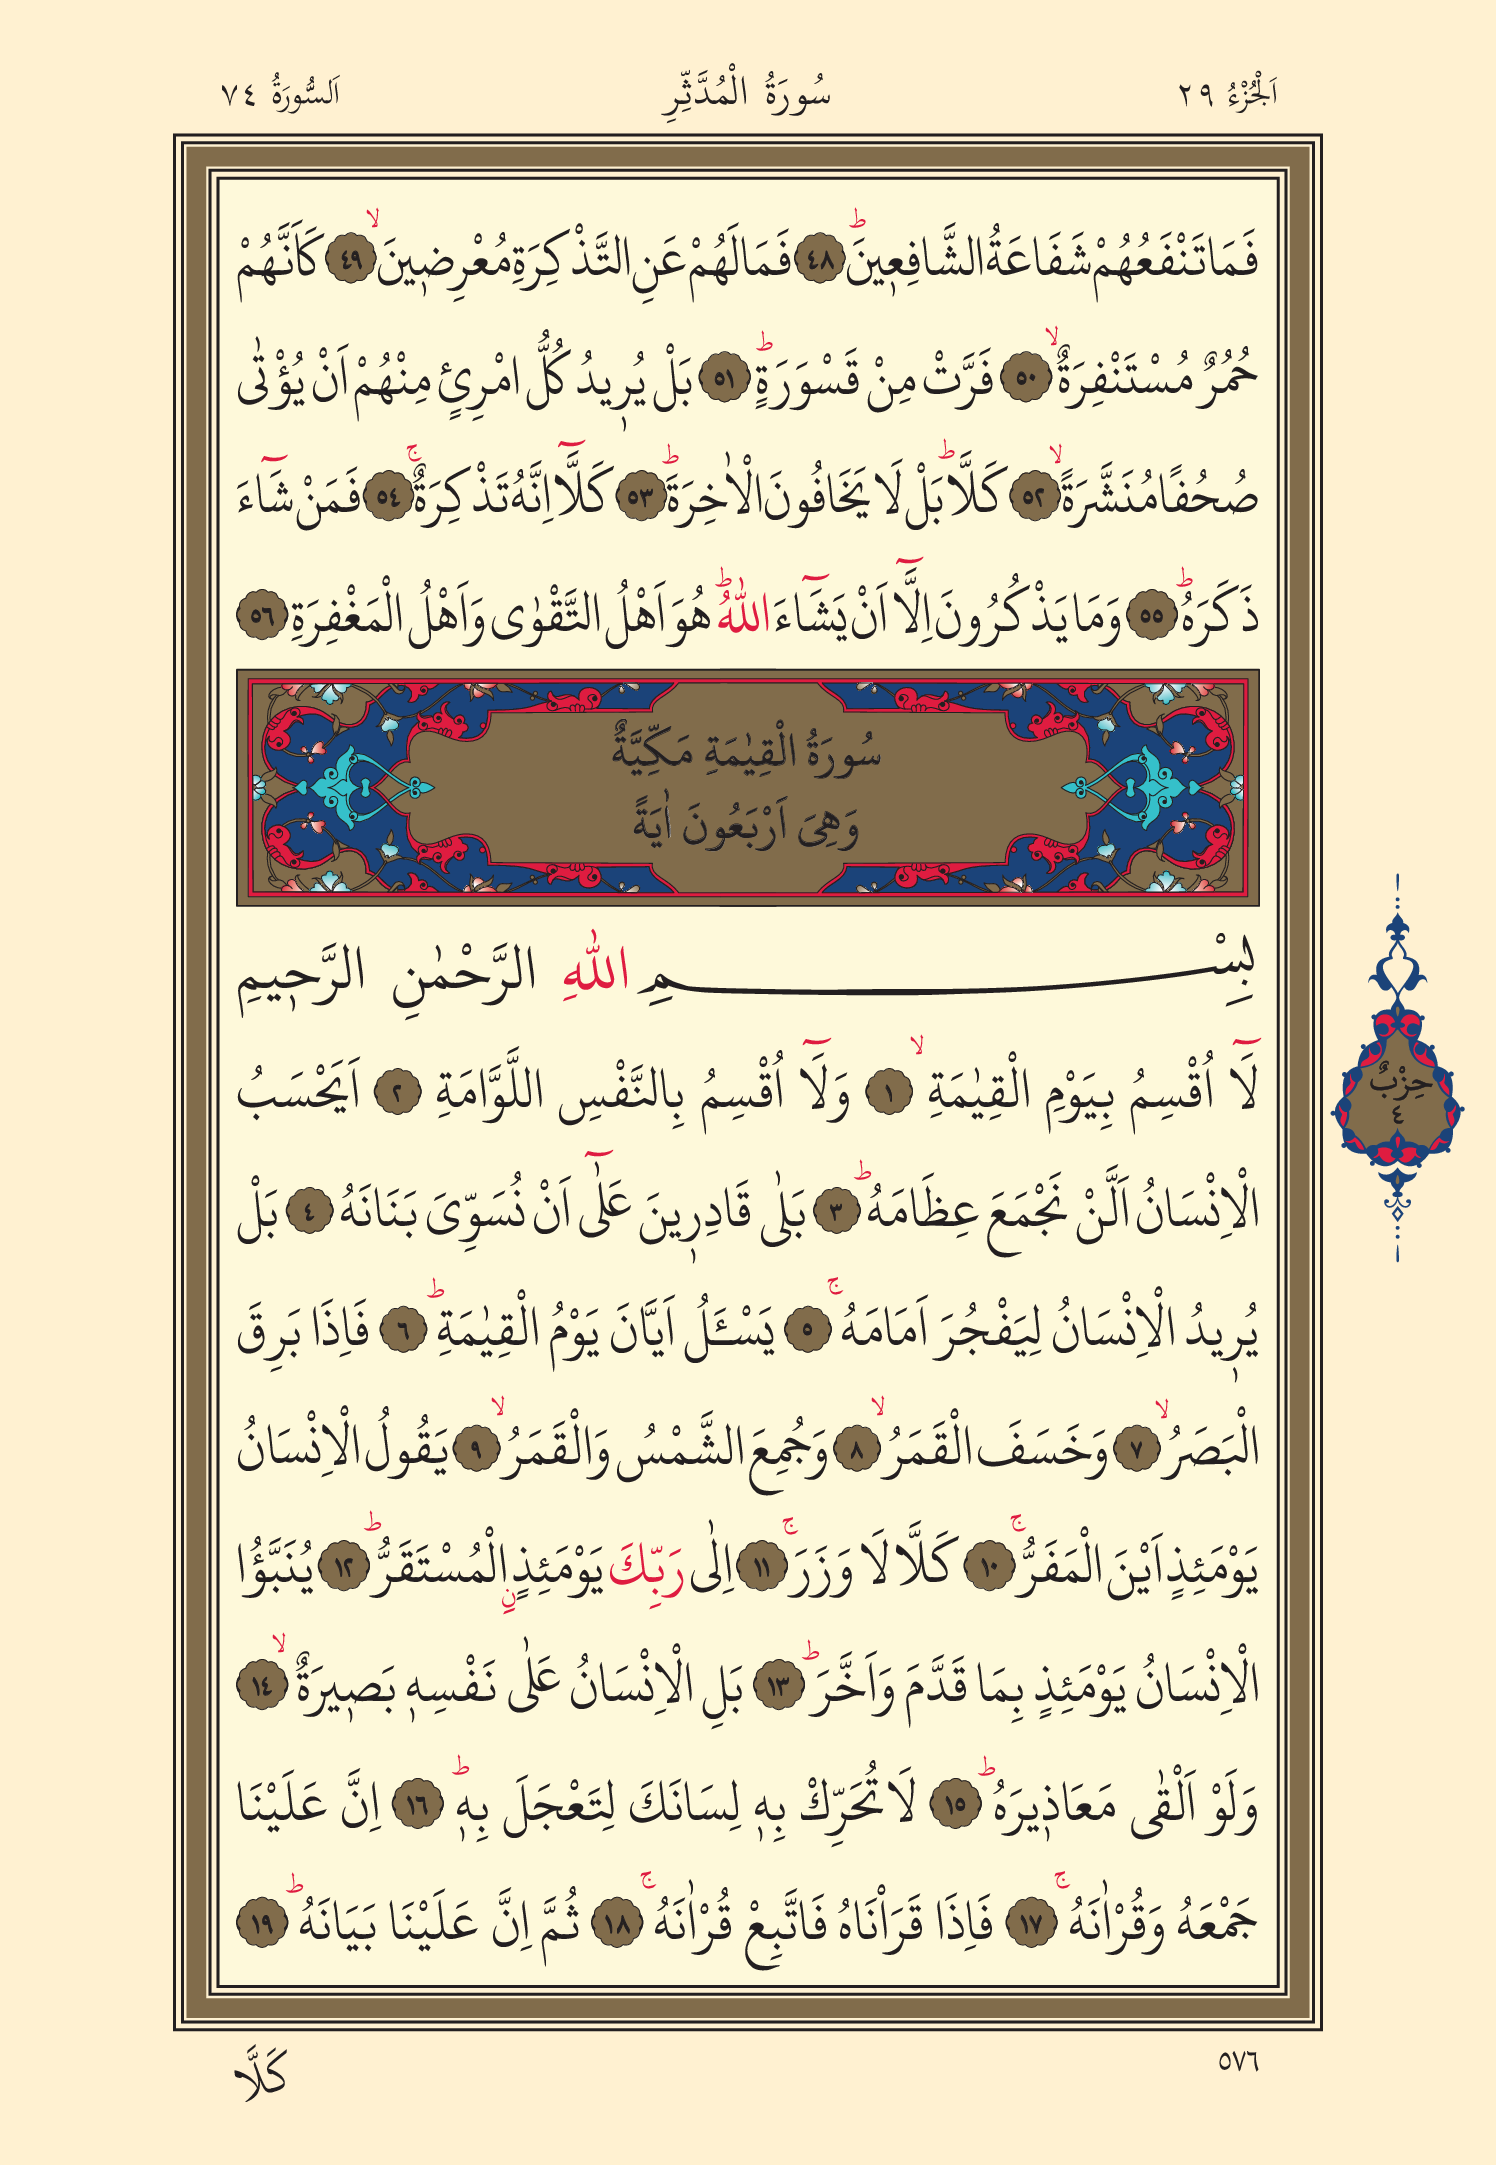 اَلْجُزْءُ ٢٩
سُورَةُ الْمُدَّثِّرِ
اَلسُّورَةُ ٧٤
فَمَا تَنْفَعُهُمْ شَفَاعَةُ الشَّافِع۪ينَۜ ٤٨ فَمَا لَهُمْ عَنِ التَّذْكِرَةِ مُعْرِض۪ينَۙ ٤٩ كَاَنَّهُمْ
حُمُرٌ مُسْتَنْفِرَةٌۙ ٥٠ فَرَّتْ مِنْ قَسْوَرَةٍۜ ٥١ بَلْ يُر۪يدُ كُلُّ امْرِئٍ مِنْهُمْ اَنْ يُؤْتٰى
صُحُفًا مُنَشَّرَةًۙ ٥٢ كَلَّاۜ بَلْ لَا يَخَافُونَ الْاٰخِرَةَۜ ٥٣ كَلَّٓا اِنَّهُ تَذْكِرَةٌۚ ٥٤ فَمَنْ شَٓاءَ
ذَكَرَهُۜ ٥٥ وَمَا يَذْكُرُونَ اِلَّٓا اَنْ يَشَٓاءَ اللّٰهُۜ هُوَ اَهْلُ التَّقْوٰى وَاَهْلُ الْمَغْفِرَةِ ٥٦
سُورَةُ الْقِيٰمَةِ مَكِّيَّةٌ
وَهِيَ اَرْبَعُونَ اٰيَةً
بِسْمِ اللّٰهِ الرَّحْمٰنِ الرَّح۪يمِ
لَٓا اُقْسِمُ بِيَوْمِ الْقِيٰمَةِۙ ١ وَلَٓا اُقْسِمُ بِالنَّفْسِ اللَّوَّامَةِ ٢ اَيَحْسَبُ
الْاِنْسَانُ اَلَّنْ نَجْمَعَ عِظَامَهُۜ ٣ بَلٰى قَادِر۪ينَ عَلٰٓى اَنْ نُسَوِّيَ بَنَانَهُ ٤ بَلْ
يُر۪يدُ الْاِنْسَانُ لِيَفْجُرَ اَمَامَهُۚ ٥ يَسْـَٔلُ اَيَّانَ يَوْمُ الْقِيٰمَةِۜ ٦ فَاِذَا بَرِقَ
الْبَصَرُۙ ٧ وَخَسَفَ الْقَمَرُۙ ٨ وَجُمِعَ الشَّمْسُ وَالْقَمَرُۙ ٩ يَقُولُ الْاِنْسَانُ
يَوْمَئِذٍ اَيْنَ الْمَفَرُّۚ ١٠ كَلَّا لَا وَزَرَۚ ١١ اِلٰى رَبِّكَ يَوْمَئِذٍۨ الْمُسْتَقَرُّۜ ١٢ يُنَبَّؤُا
الْاِنْسَانُ يَوْمَئِذٍ بِمَا قَدَّمَ وَاَخَّرَۜ ١٣ بَلِ الْاِنْسَانُ عَلٰى نَفْسِه۪ بَص۪يرَةٌۙ ١٤
وَلَوْ اَلْقٰى مَعَاذ۪يرَهُۜ ١٥ لَا تُحَرِّكْ بِه۪ لِسَانَكَ لِتَعْجَلَ بِه۪ۜ ١٦ اِنَّ عَلَيْنَا
جَمْعَهُ وَقُرْاٰنَهُۚ ١٧ فَاِذَا قَرَاْنَاهُ فَاتَّبِعْ قُرْاٰنَهُۚ ١٨ ثُمَّ اِنَّ عَلَيْنَا بَيَانَهُۜ ١٩
حِزْبٌ
٤
٥٧٦
كَلَّا